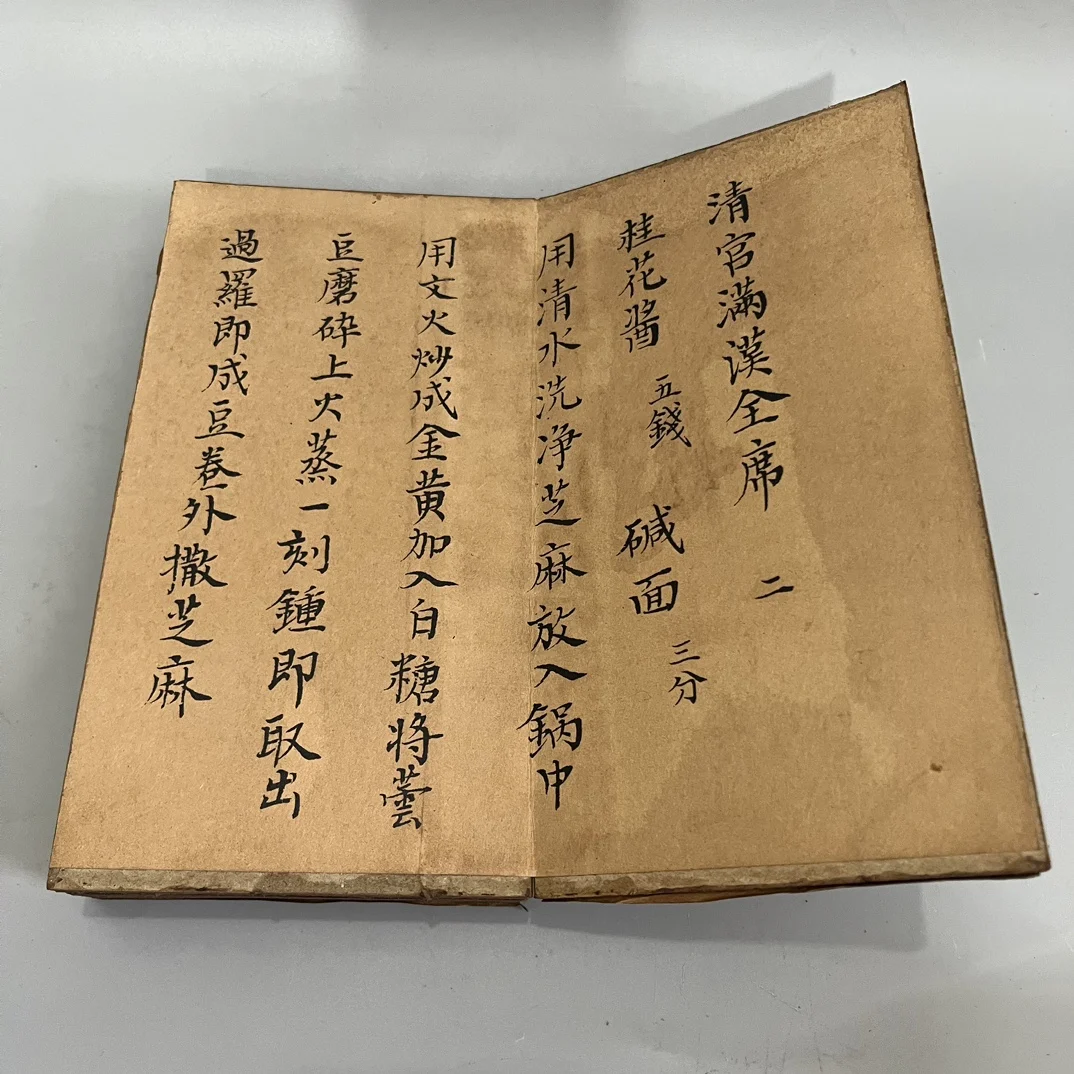 清宫滿漢全席 二
桂花酱 五錢 碱面 三分
用清水洗净芝麻放入鍋中
用文火炒成金黄加入白糖将蕓
豆磨碎上火蒸一刻鍾即取出
過羅即成豆卷外撒芝麻